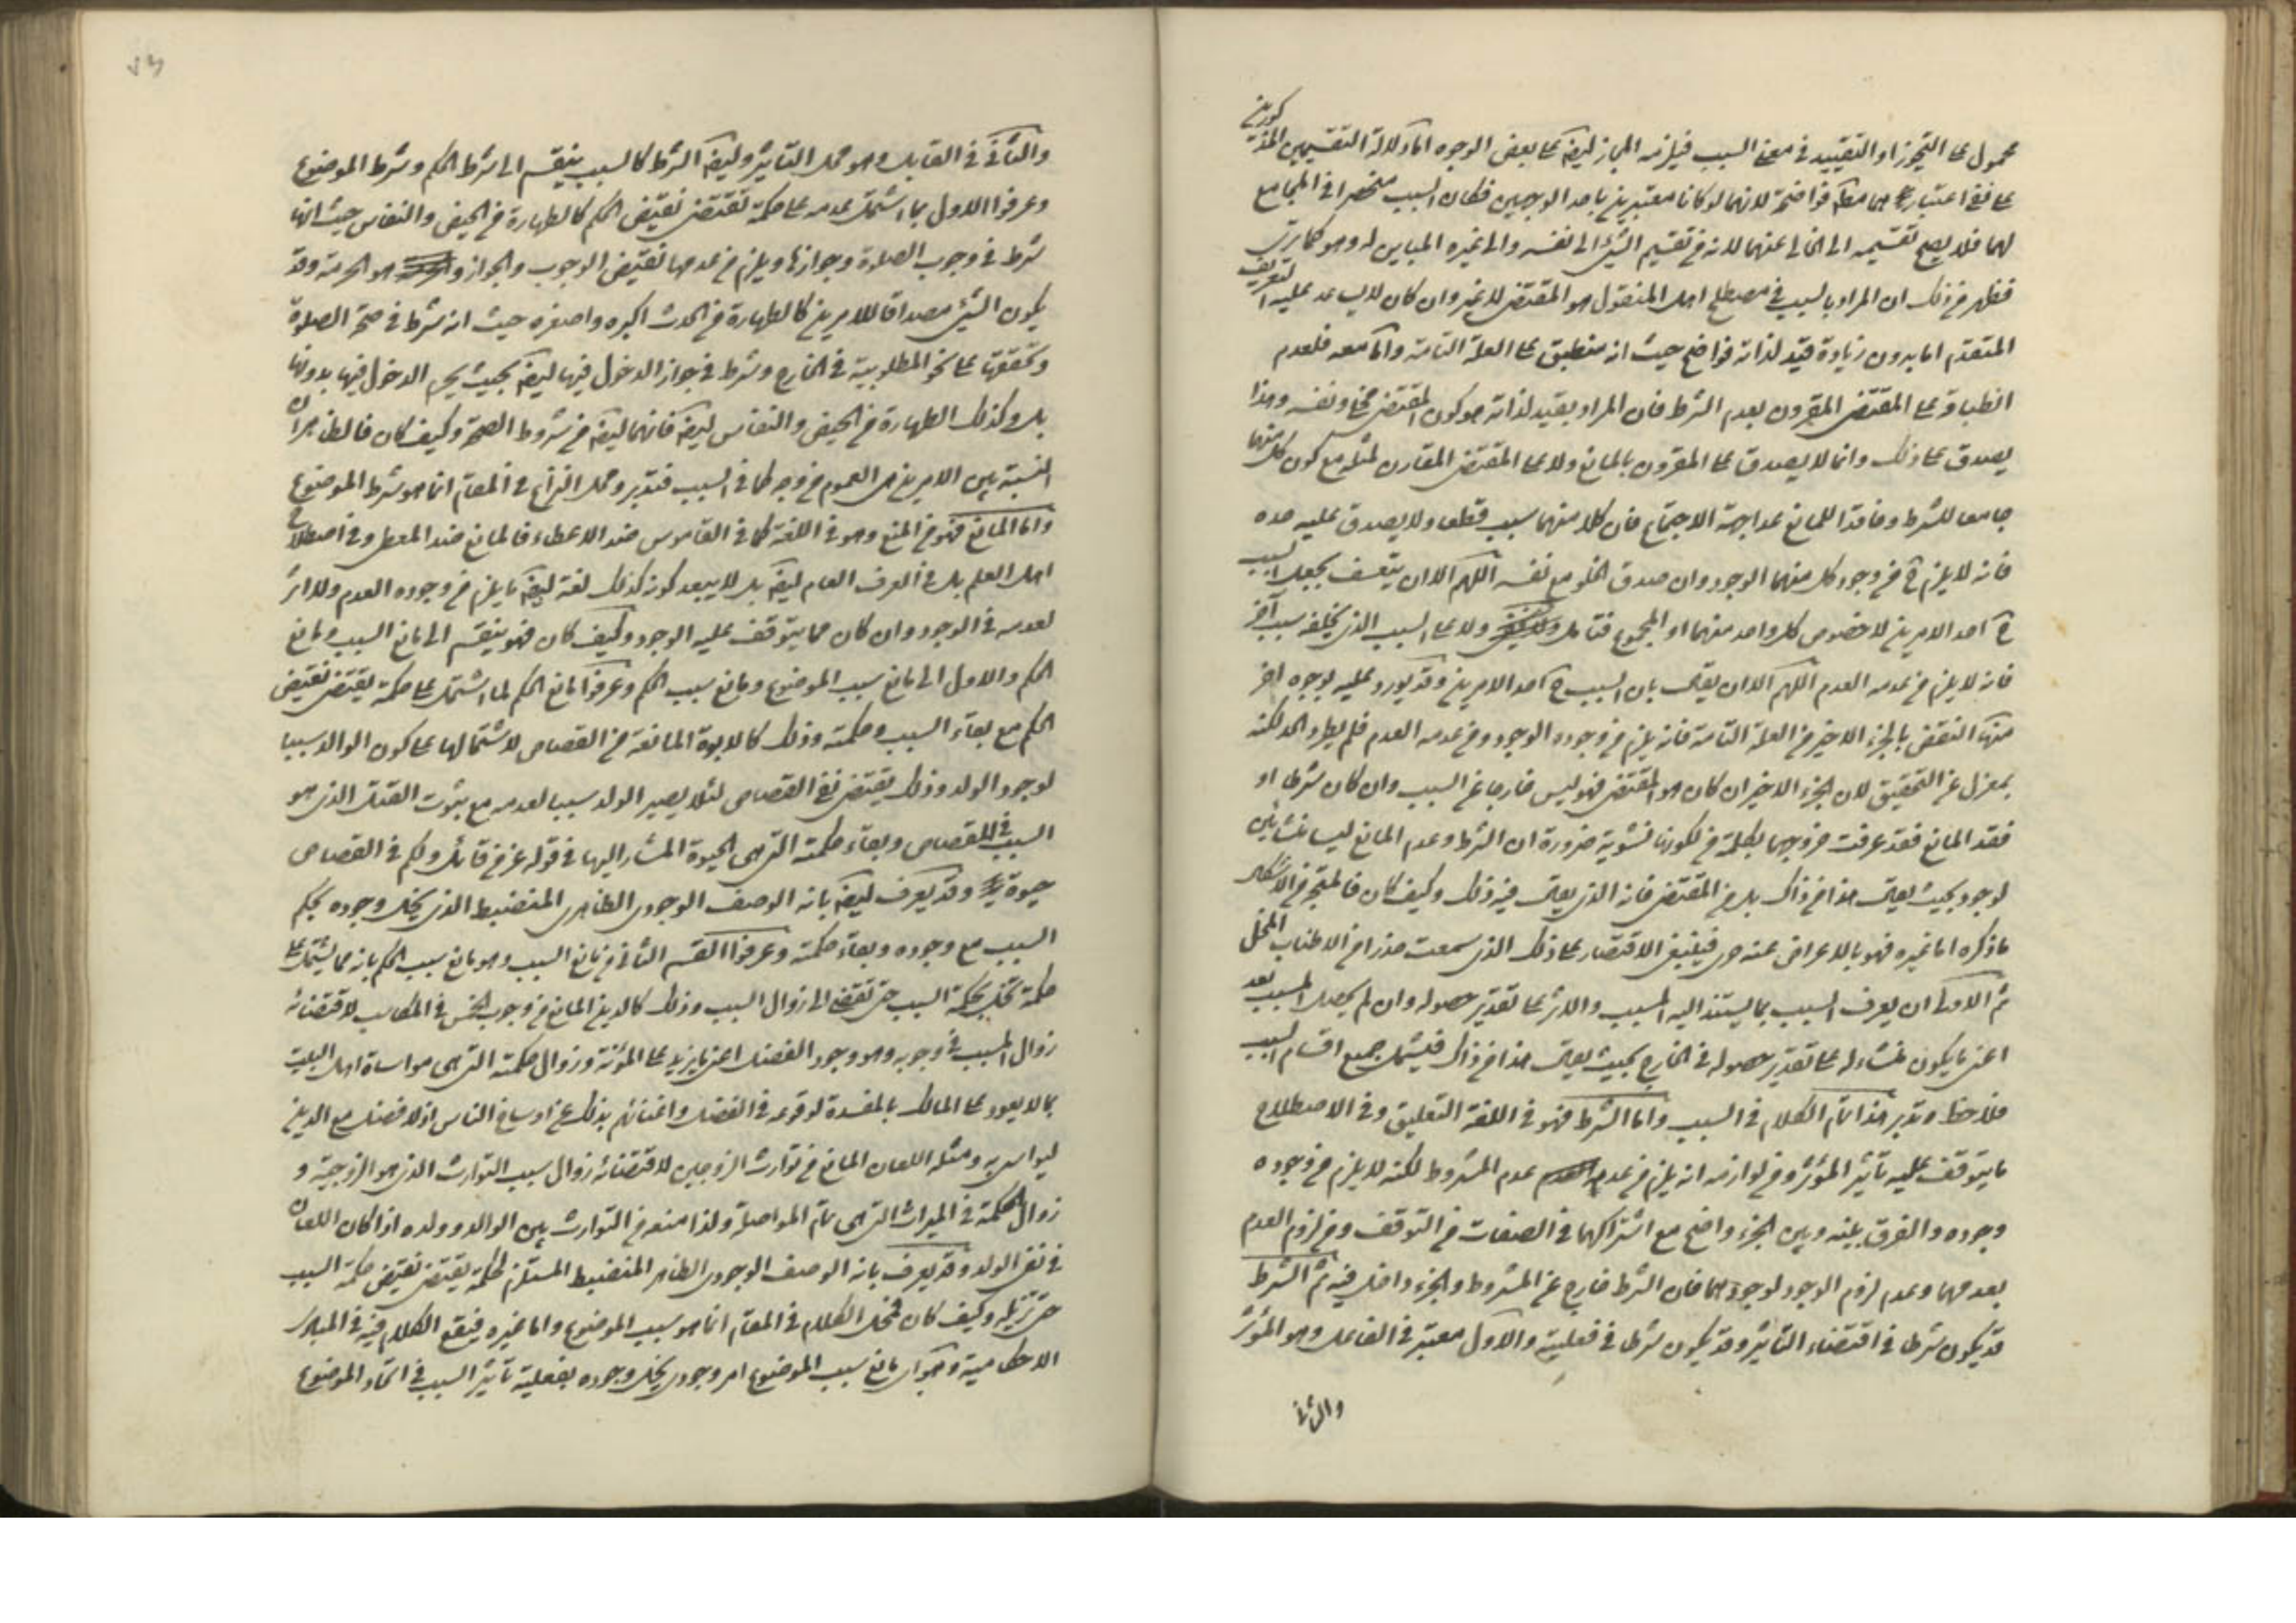 محمول على التجوز او التقييد في معنى السبب فيلزمه المجاز ليضا على بعض الوجوه اما دلالة التقسيمين المذكورين
على نفي اعتبارهما معا فواضحة لانهما لو كانا معتبرين باحد الوجهين فكان السبب منحصرا في الجامع
لهما فلا يصح تقسيمه الى الخالى عنهما لانه تقسيم الشئ الى نفسه والى غيره المباين له وهو كما ترى
فظهر من ذلك ان المراد بالسبب في مصطلح اهل المنقول هو المقتضى لا غير وان كان لا يساعد عليه التعريف
المتقدم اما بدون زيادة قيد لذاته فواضح حيث انه منطبق على العلة التامة واما معه فلعدم
انطباقه على المقتضى المقرون بعدم الشرط فان المراد بقيد لذاته هو كون المقتضى مخلى ونفسه وهذا
يصدق على ذلك وانما لا يصدق على المقرون بالمانع ولا على المقتضى المقارن لمثله مع كون كل منهما
جامعا للشرط وفاقدا للمانع عدا جهة الاجتماع فان كلا منهما سبب قطعا ولا يصدق عليه حده
فانه لا يلزم ح من وجود كل منهما الوجود وان صدق الخلو مع نفسه اللهم الا ان يتعسف بجعل السبب
ح احد الامرين لا خصوص كل واحد منهما او المجموع فتامل ولا على السبب الذى يخلفه سبب آخر
فانه لا يلزم من عدمه العدم اللهم الا ان يقال بان السبب ح احد الامرين وقد يورد عليه بوجوه اخر
منها النقض بالجزء الاخير من العلة التامة فانه يلزم من وجوده الوجود ومن عدمه العدم فلم يطرد الحد لكنه
بمعزل عن التحقيق لان الجزء الاخير ان كان هو المقتضى فهو ليس خارجا عن السبب وان كان شرطا او
فقد المانع فقد عرفت خروجهما بكلمة من لكونها نشوية ضرورة ان الشرط وعدم المانع ليسا منشأين
لوجود بحيث يقال هذا من ذاك بل من المقتضى فانه الذى يقال فيه ذلك وكيف كان فالمتجه من الاشكال
ما ذكره اما غيره فهو بالاعراض عنه حرى فينبغى الاقتصار على ذلك الذى سمعت حذرا من الاطناب المخل
ثم الاولى ان يعرف السبب بما يستند اليه المسبب والاثر على تقدير حصوله وان لم يحصل المسبب بعد
اعنى ما يكون منشاء له على تقدير حصوله في الخارج بحيث يقال هذا من ذاك فيشمل جميع اقسام السبب
فلاحظ وتدبر هذا تمام الكلام في السبب واما الشرط فهو في اللغة التعليق وفي الاصطلاح
ما يتوقف عليه تأثير المؤثر ومن لوازمه انه يلزم من عدمه عدم المشروط لكنه لا يلزم من وجوده
وجوده والفرق بينه وبين الجزء واضح مع اشتراكهما في الصفات من التوقف ومن لزوم العدم
بعدمهما وعدم لزوم الوجود لوجودهما فان الشرط خارج عن المشروط والجزء داخل فيه ثم الشرط
قد يكون شرطا في اقتضاء التأثير وقد يكون شرطا في فعليته والاول معتبر في الفاعل وهو المؤثر
والثانى
٧٣
والثانى في القابل وهو محل التأثير وليضا الشرط كالسبب ينقسم الى شرط الحكم وشرط الموضوع
وعرفوا الاول بما اشتمل عدمه على حكمة تقتضى نقيض الحكم كالطهارة من الحيض والنفاس حيث انها
شرط في وجوب الصلوة وجوازها ويلزم من عدمها نقيض الوجوب والجواز وهو الحرمة وقد
يكون الشئ مصداقا للامرين كالطهارة من الحدث اكبره واصغره حيث انه شرط في صحة الصلوة
وتحققها على نحو المطلوبية في الخارج وشرط في جواز الدخول فيها ليضا بحيث يحرم الدخول فيها بدونها
بل وكذلك الطهارة من الحيض والنفاس ليضا فانهما ليضا من شروط الصحة وكيف كان فالظاهر ان
النسبة بين الامرين هى العموم من وجه كما في السبب فتدبر ومحل النزاع في المقام انما هو شرط الموضوع
واما المانع فهو من المنع وهو في اللغة كما في القاموس ضد الاعطاء فالمانع ضد المعطى وفي اصطلاح
اهل العلم بل في العرف العام ليضا بل لا يبعد كونه كذلك لغة ليضا ما يلزم من وجوده العدم ولا اثر
لعدمه في الوجود وان كان مما يتوقف عليه الوجود وكيف كان فهو ينقسم الى مانع السبب ومانع
الحكم والاول الى مانع سبب الموضوع ومانع سبب الحكم وعرفوا مانع الحكم لما اشتمل على حكمة يقتضى نقيض
الحكم مع بقاء السبب وحكمته وذلك كالابوة المانعة من القصاص لاشتمالها على كون الوالد سببا
لوجود الولد وذلك يقتضى نفى القصاص لئلا يصير الولد سببا لعدمه مع ثبوت القتل الذى هو
السبب في القصاص وبقاء حكمته التى هى الحيوة المشار اليها في قوله عز من قائل ولكم في القصاص
حيوة وقد يعرف ليضا بانه الوصف الوجودى الظاهرى المنضبط الذى يخل وجوده بحكم
السبب مع وجوده وبقاء حكمته وعرفوا القسم الثانى من مانع السبب وهو مانع سبب الحكم بانه مما يشتمل على
حكمة تخل بحكمة السبب حتى تفضى الى زوال السبب وذلك كالدين المانع من وجوب الخمس في المكاسب لاقتضائه
زوال السبب في وجوبه وهو وجود الفضل اعنى ما يزيد على المؤنة وزوال حكمته التى هى مواساة اهل البيت
بما لا يعود على المالك بالمفسدة لوقوعه في الفضل واغنائهم بذلك عن اوساخ الناس اذ لا فضل مع الدين
ليواسى به ومثله اللعان المانع من توارث الزوجين لاقتضائه زوال سبب التوارث الذى هو الزوجية و
زوال الحكمة في الميراث التى هى تام المواصلة ولذا منعه من التوارث بين الوالد وولده اذا كان اللعان
في نفى الولد وقد يعرف بانه الوصف الوجودى الظاهر المنضبط المستلزم لحكمة يقتضى نقيض حكمة السبب
حتى تزيله وكيف كان فمحل الكلام في المقام انما هو سبب الموضوع واما غيره فيقع الكلام فيه في المبادى
الاحكامية وهو اى مانع سبب الموضوع امر وجودى يخل وجوده بفعلية تأثير السبب في اتحاد الموضوع